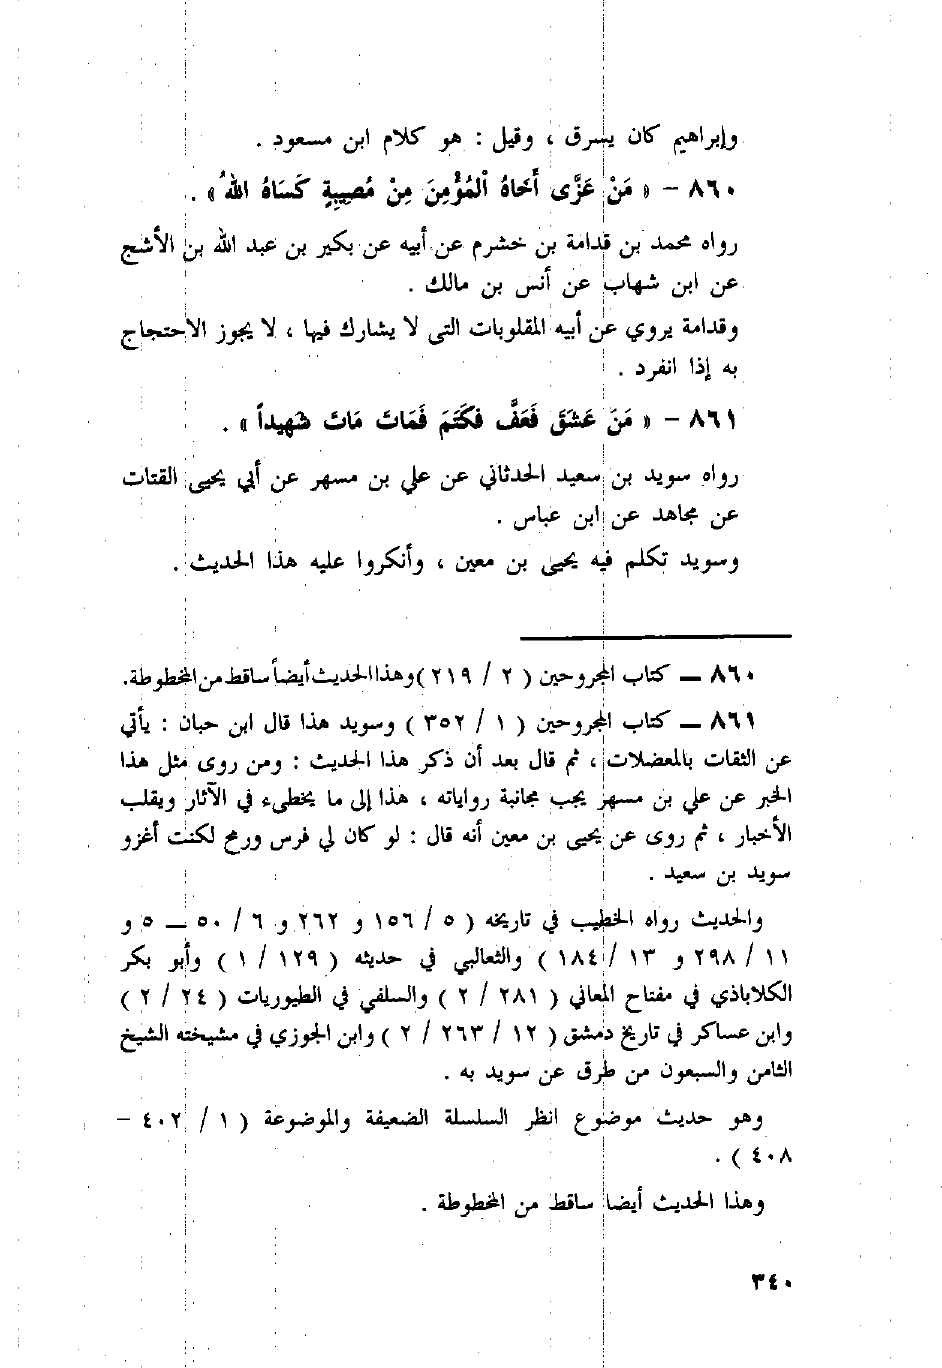 وإبراهيم كان يسرق ، وقيل : هو كلام ابن مسعود .
٨٦٠ – « مَنْ عَزَّى أَخَاهُ اَلْمُؤْمِنَ مِنْ مُصِيبِةٍ كَسَاهُ اللهُ » .
رواه محمد بن قدامة بن خشرم عن أبيه عن بكير بن عبد الله بن الأشج
عن ابن شهاب عن أنس بن مالك .
وقدامة يروي عن أبيه المقلوبات التى لا يشارك فيها ، لا يجوز الاحتجاج
به إذا انفرد .
٨٦١ – « مَنَ عَشَقَ فَعَفَّ فكَتَمَ فَمَاتَ مَاتَ شَهِيداً » .
رواه سويد بن سعيد الحدثاني عن علي بن مسهر عن أبي يحيى القتات
عن مجاهد عن ابن عباس .
وسويد تكلم فيه يحيى بن معين ، وأنكروا عليه هذا الحديث .
٨٦٠ — كتاب المجروحين ( ٢ / ٢١٩ ) وهذا الحديث أيضاً ساقط من المخطوطة.
٨٦١ — كتاب المجروحين ( ١ / ٣٥٢ ) وسويد هذا قال ابن حبان : يأتي
عن الثقات بالمعضلات ، ثم قال بعد أن ذكر هذا الحديث : ومن روى مثل هذا
الخبر عن علي بن مسهر يجب مجانبة رواياته ، هذا إلى ما يخطىء في الآثار ويقلب
الأخبار ، ثم روى عن يحيى بن معين أنه قال : لو كان لي فرس ورمح لكنت أغزو
سويد بن سعيد .
والحديث رواه الخطيب في تاريخه ( ٥ / ١٥٦ و ٢٦٢ و ٦ / ٥٠ — ٥ و
١١ / ٢٩٨ و ١٣ / ١٨٤ ) والثعالبي في حديثه ( ١٢٩ / ١ ) وأبو بكر
الكلاباذي في مفتاح المعاني ( ٢٨١ / ٢ ) والسلفي في الطيوريات ( ٢٤ / ٢ )
وابن عساكر في تاريخ دمشق ( ١٢ / ٢٦٣ / ٢ ) وابن الجوزي في مشيخته الشيخ
الثامن والسبعون من طرق عن سويد به .
وهو حديث موضوع انظر السلسلة الضعيفة والموضوعة ( ١ / ٤٠٢ –
٤٠٨ ) .
وهذا الحديث أيضا ساقط من المخطوطة .
٣٤٠